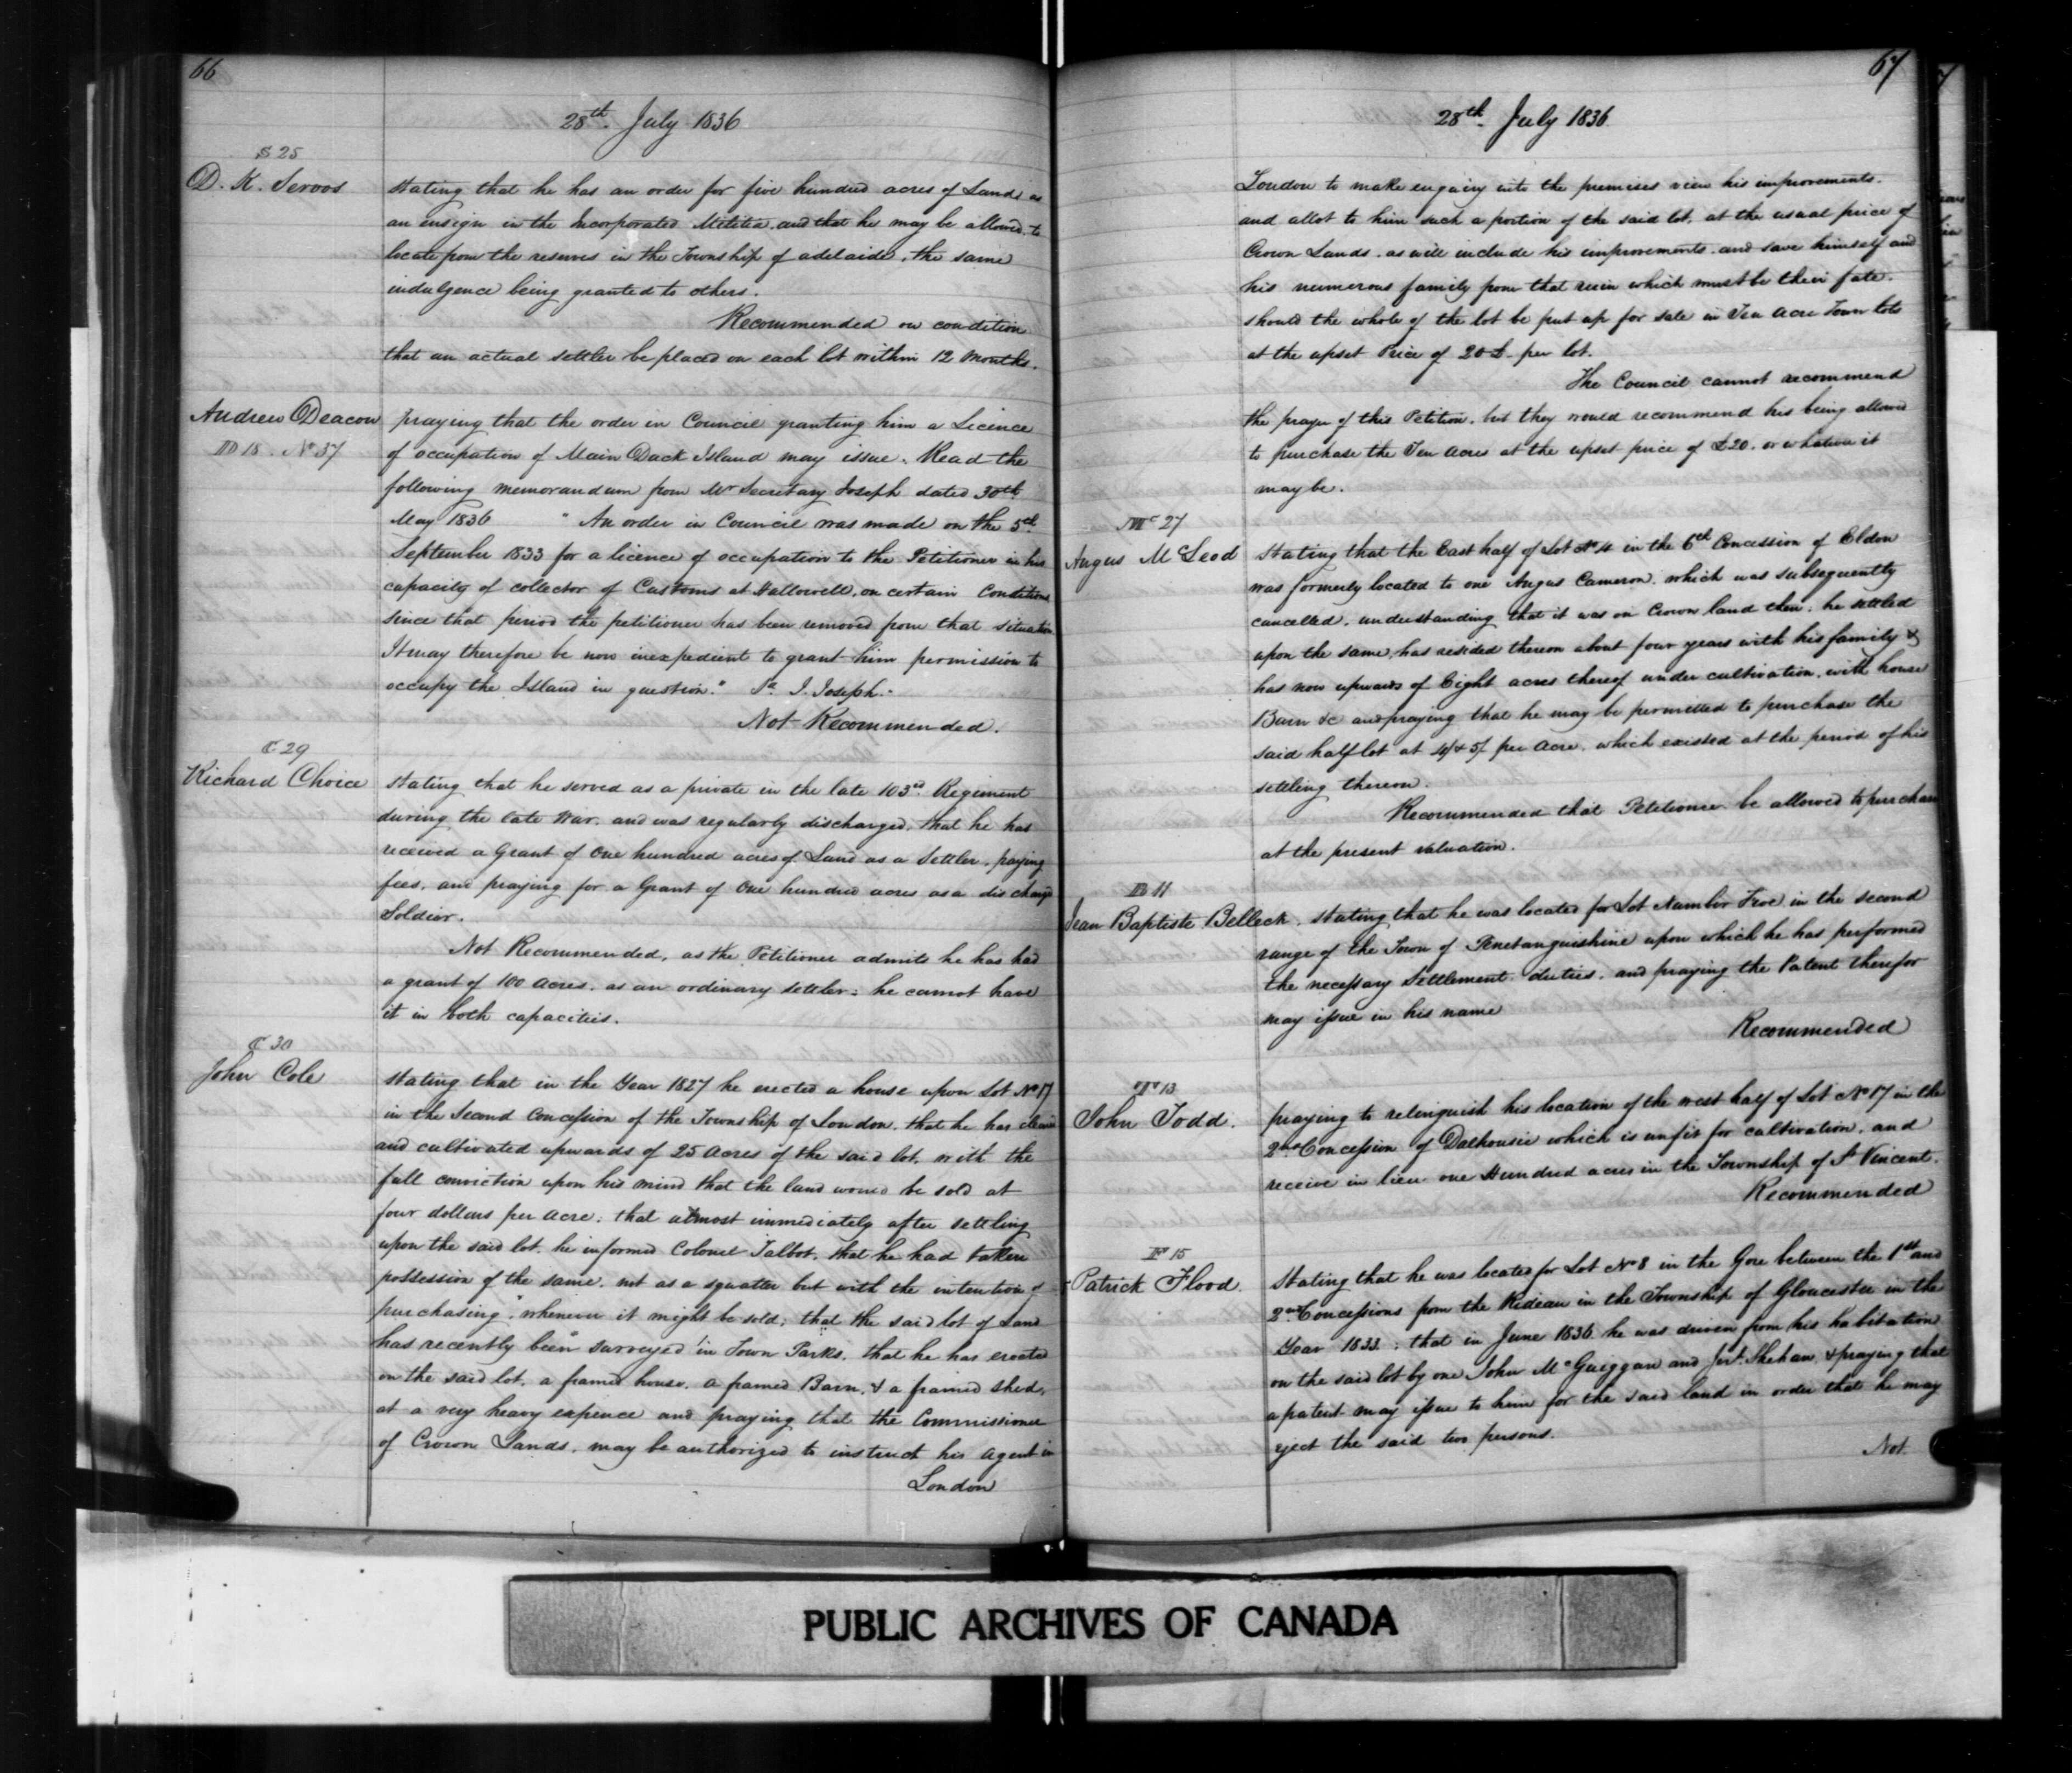 66
28th July 1836
S 25
D. K. Servos
stating that he has an order for five hundred acres of Land as
an ensign in the Incorporated Militia, and that he may be allowed to
locate from the reserves in the Township of adelaide, the same
indulgence being granted to others.
Recommended on condition
that an actual settler be placed on each lot within 12 Months.
Andrew Deacon
D 18. No 37
praying that the order in Council granting him a Licence
of occupation of Main Duck Island may issue. Read the
following memorandum from Mr Secretary Joseph dated 30th
May 1836 " An order in Council was made on the 5th
September 1833 for a licence of occupation to the Petitioner in his
capacity of collector of Customs at Hallowell, on certain Conditions
since that period the petitioner has been removed from that situation
It may therefore be now inexpedient to grant him permission to
occupy the Island in question." Sd J. Joseph.
Not Recommended.
C 29
Richard Choice
stating that he served as a private in the late 103rd Regiment
during the late War, and was regularly discharged, that he has
received a Grant of One hundred acres of Land as a Settler, paying
fees, and praying for a Grant of One hundred acres as a discharged
Soldier.
Not Recommended, as the Petitioner admits he has had
a grant of 100 acres, as an ordinary settler; he cannot have
it in both capacities.
C 30
John Cole
stating that in the Year 1827 he erected a house upon Lot No 17
in the Second Concession of the Township of London, that he has cleared
and cultivated upwards of 25 Acres of the said lot, with the
full conviction upon his mind that the land would be sold at
four dollars per acre; that almost immediately after settling
upon the said lot, he informed Colonel Talbot, that he had taken
possession of the same, not as a squatter but with the intention of
purchasing, whenever it might be sold; that the said lot of Land
has recently been surveyed in Town Parks, that he has erected
on the said lot, a framed house, a framed Barn, & a framed shed,
at a very heavy expence and praying that the Commissioner
of Crown Lands, may be authorized to instruct his Agent in
London
67
28th July 1836
London to make enquiry into the premises view his improvements.
and allot to him such a portion of the said lot, at the usual price of
Crown Lands, as will include his improvements, and save himself and
his numerous family from that ruin which must be their fate.
should the whole of the lot be put up for sale in Ten acre Town lots
at the upset Price of 20£ per lot.
The Council cannot recommend
the prayer of this Petition, but they would recommend his being allowed
to purchase the Ten acres at the upset price of £20. or whatever it
may be.
Mc 27
Angus McLeod
stating that the East half of Lot No 4 in the 6th Concession of Eldon
was formerly located to one Angus Cameron, which was subsequently
cancelled, understanding that it was on Crown land then, he settled
upon the same, has resided thereon about four years with his family &
has now upwards of Eight acres thereof under cultivation, with house
Barn &c and praying that he may be permitted to purchase the
said half lot at 4/ & 5/ per Acre, which existed at the period of his
settling thereon.
Recommended that Petitioner be allowed to purchase
at the present valuation.
B 11
Jean Baptiste Belleck.
stating that he was located for Lot Number Five in the second
range of the Town of Penetanguishine upon which he has performed
the necessary Settlement duties, and praying the Patent therefor
may issue in his name
Recommended
T 13
John Todd.
praying to relinquish his location of the west half of Lot No 17 in the
2nd Concession of Dalhousie which is unfit for cultivation, and
receive in lieu one Hundred acres in the Township of St Vincent.
Recommended
F 15
Patrick Flood.
stating that he was located for Lot No 8 in the Gore between the 1st and
2nd Concessions from the Rideau in the Township of Gloucester in the
Year 1833.; that in June 1836 he was driven from his habitation
on the said lot by one John McGuiggan and Shehan, & praying that
a patent may issue to him for the said land in order that he may
eject the said two persons.
Not.
PUBLIC ARCHIVES OF CANADA